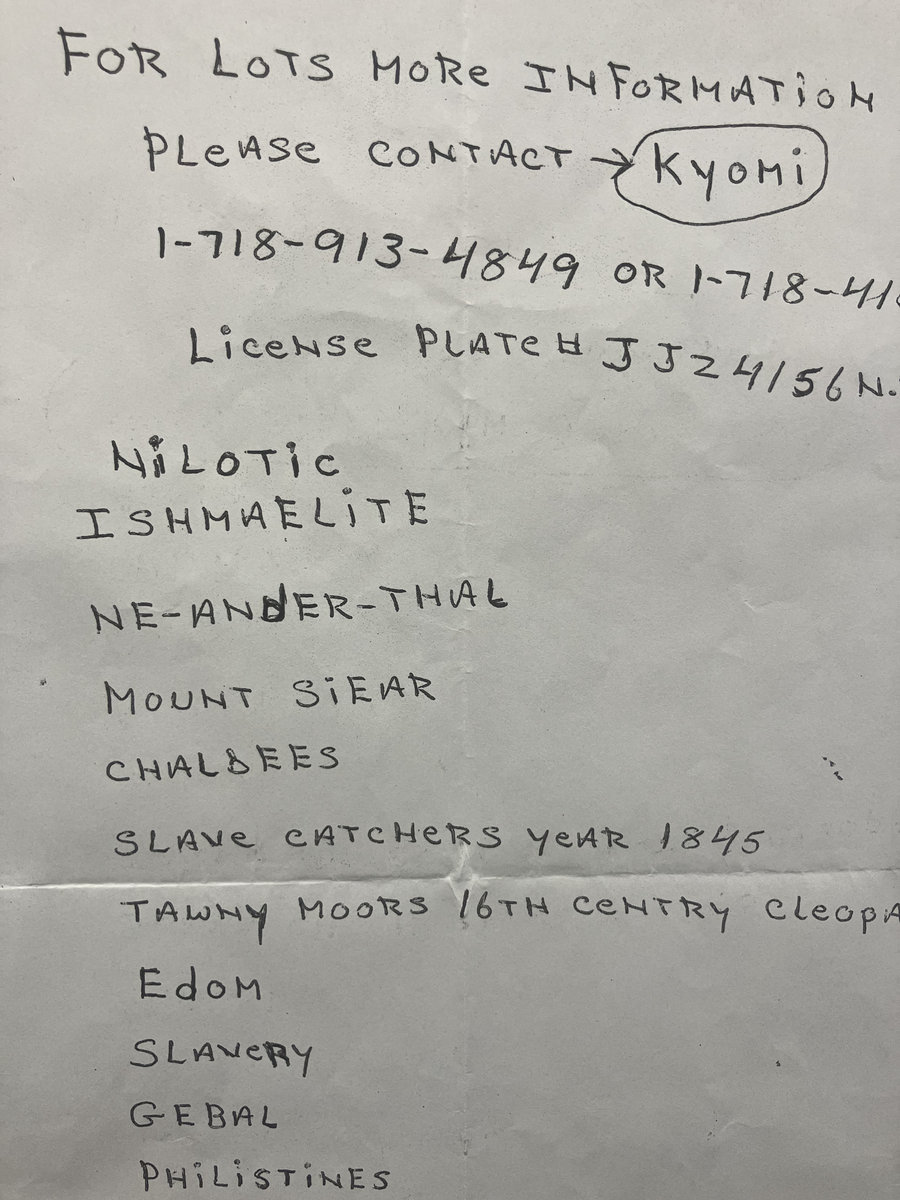 FOR LOTS MORE INFORMATION
PLEASE CONTACT → KYOMI
1-718-913-4849 OR 1-718-41
LICENSE PLATE # JJZ4156 N.
NILOTIC
ISHMAELITE
NE-ANDER-THAL
MOUNT SIEAR
CHALDEES
SLAVE CATCHERS YEAR 1845
TAWNY MOORS 16TH CENTRY CLEOPA
EDOM
SLAVERY
GEBAL
PHILISTINES